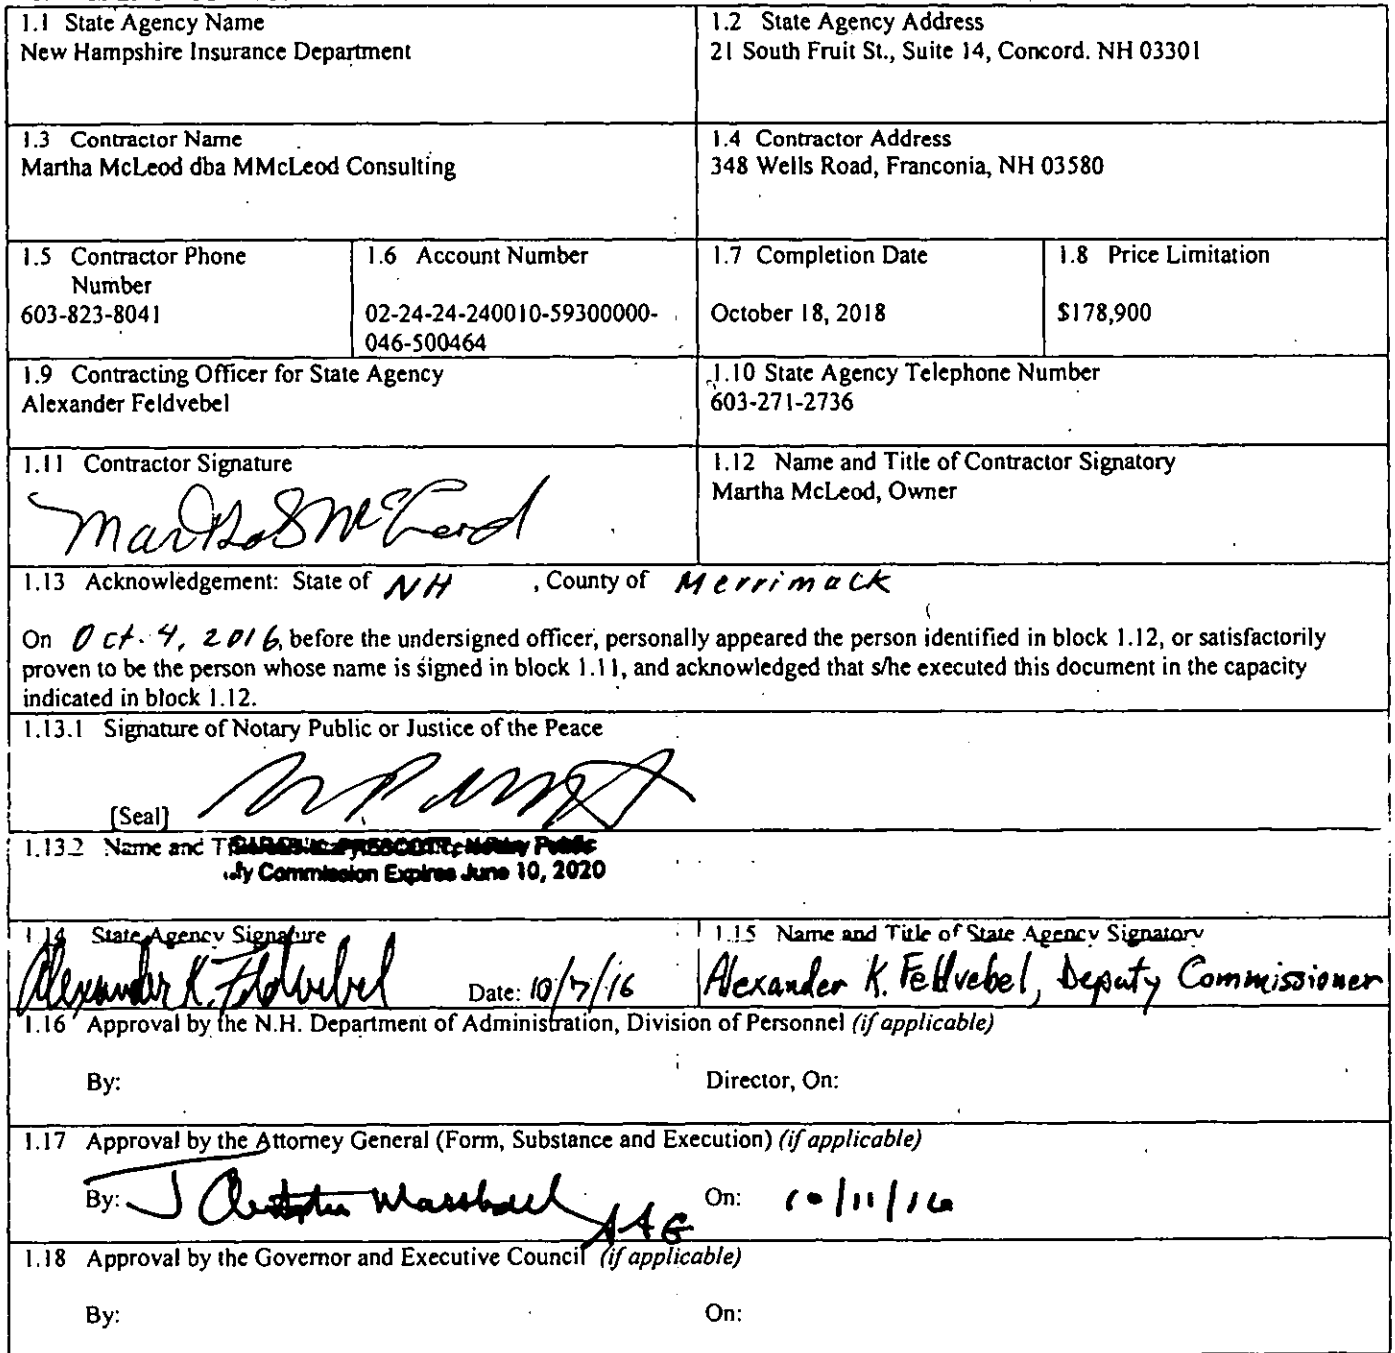 1.1 State Agency Name
New Hampshire Insurance Department
1.2 State Agency Address
21 South Fruit St., Suite 14, Concord. NH 03301
1.3 Contractor Name
Martha McLeod dba MMcLeod Consulting
1.4 Contractor Address
348 Wells Road, Franconia, NH 03580
1.5 Contractor Phone
Number
603-823-8041
1.6 Account Number
02-24-24-240010-59300000-
046-500464
1.7 Completion Date
October 18, 2018
1.8 Price Limitation
$178,900
1.9 Contracting Officer for State Agency
Alexander Feldvebel
1.10 State Agency Telephone Number
603-271-2736
1.11 Contractor Signature
Martha S McLeod
1.12 Name and Title of Contractor Signatory
Martha McLeod, Owner
1.13 Acknowledgement: State of NH , County of Merrimack
On Oct. 4, 2016, before the undersigned officer, personally appeared the person identified in block 1.12, or satisfactorily
proven to be the person whose name is signed in block 1.11, and acknowledged that s/he executed this document in the capacity
indicated in block 1.12.
1.13.1 Signature of Notary Public or Justice of the Peace
[Seal]
1.13.2 Name and PRESCOTT, Notary Public
My Commission Expires June 10, 2020
1.14 State Agency Signature
Alexander K. Feldvebel Date: 10/7/16
1.15 Name and Title of State Agency Signatory
Alexander K. Feldvebel, Deputy Commissioner
1.16 Approval by the N.H. Department of Administration, Division of Personnel (if applicable)
By: Director, On:
1.17 Approval by the Attorney General (Form, Substance and Execution) (if applicable)
By: J Christopher Marshall AAG On: 10/11/16
1.18 Approval by the Governor and Executive Council (if applicable)
By: On: